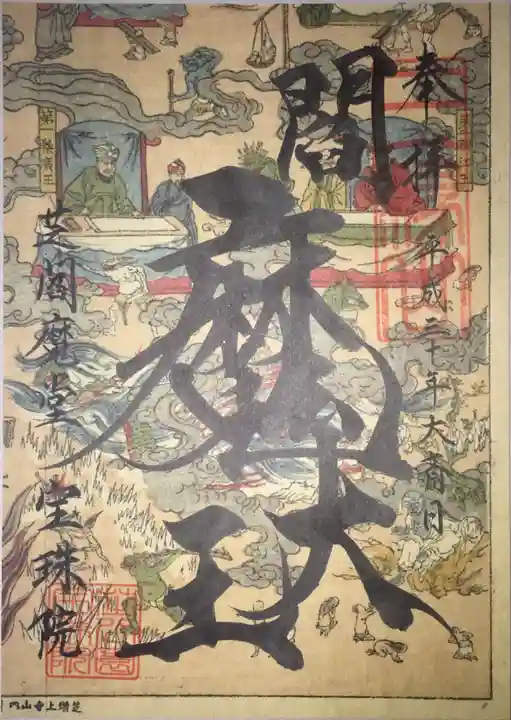 奉拝
平成三十年大斎日
閻魔大王
芝閻魔堂宝珠院
第一秦広王
芝増上寺山内